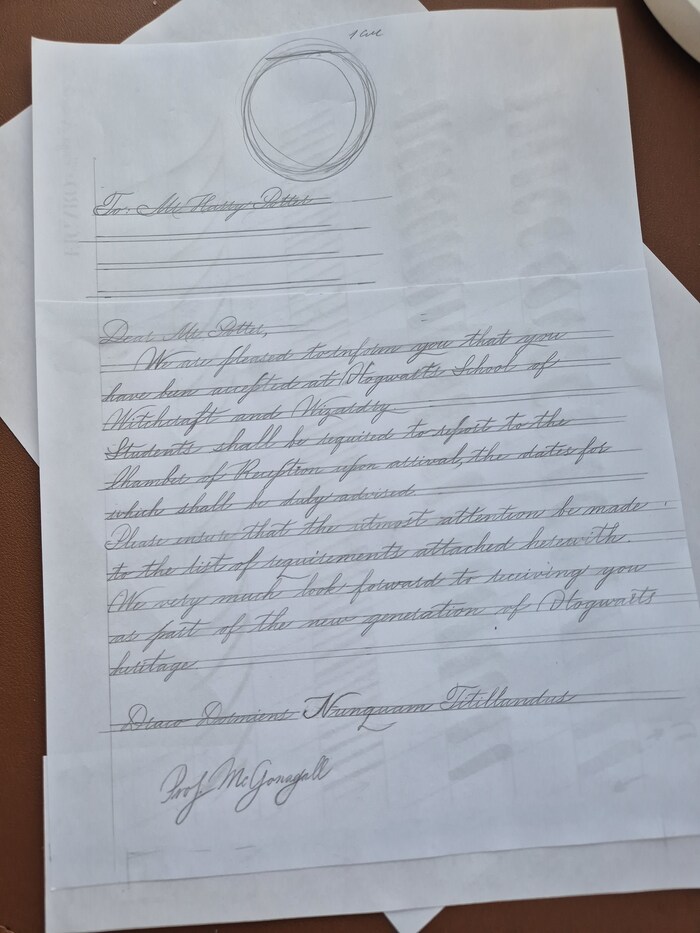 To: Mr Harry Potter
Dear Mr Potter,
We are pleased to inform you that you
have been accepted at Hogwarts School of
Witchcraft and Wizardry.
Students shall be required to report to the
Chamber of Reception upon arrival, the dates for
which shall be duly advised.
Please ensure that the utmost attention be made
to the list of requirements attached herewith.
We very much look forward to receiving you
as part of the new generation of Hogwarts
heritage
Draco Dormiens Nunquam Titillandus
Prof McGonagall